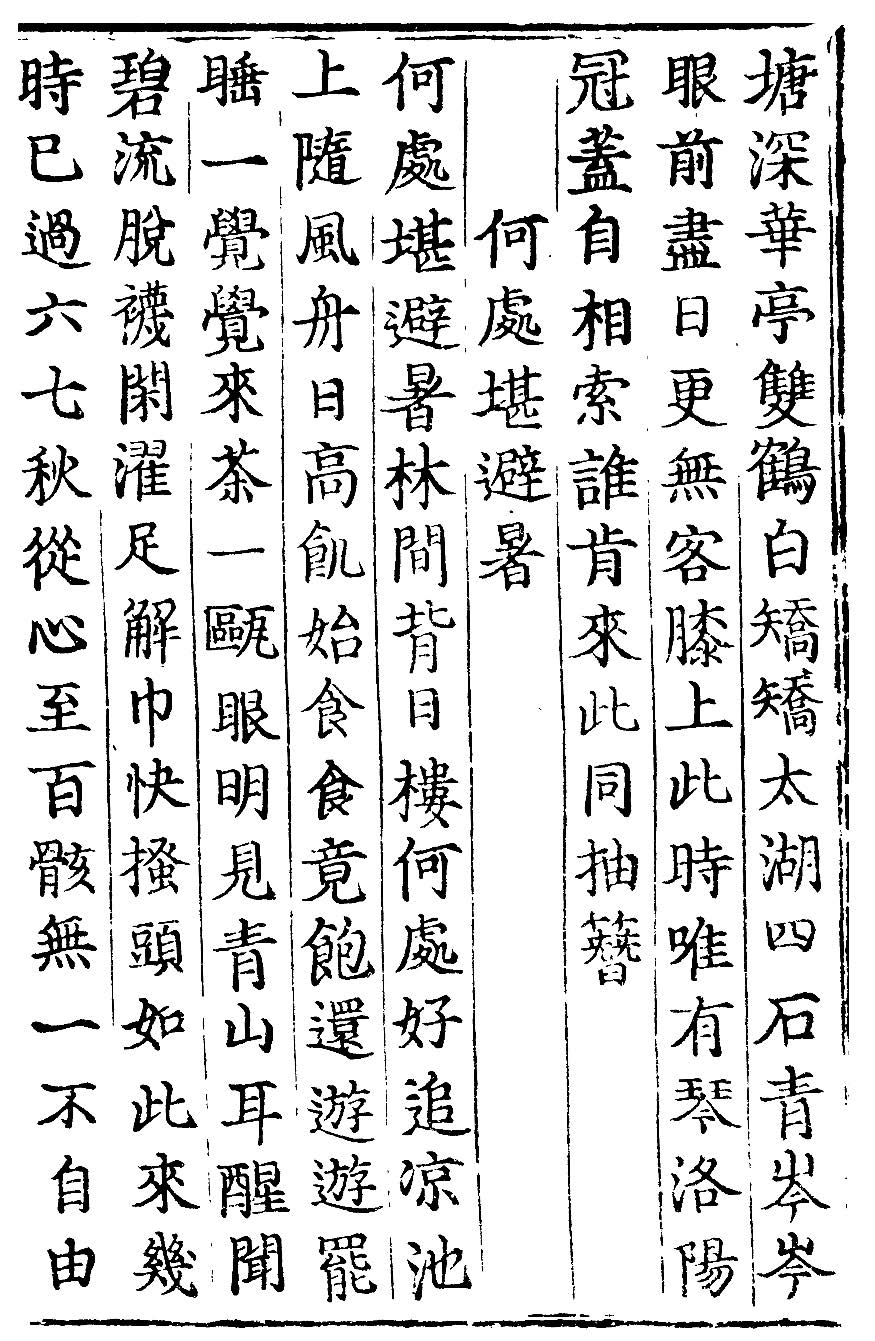 塘深華亭雙鶴白矯矯太湖四石青岑岑
眼前盡日更無客膝上此時唯有琴洛陽
冠蓋自相索誰肯來此同抽簪
何處堪避暑
何處堪避暑林間背日樓何處好追凉池
上隨風舟日高飢始食食竟飽還遊遊罷
睡一覺覺來茶一甌眼明見青山耳醒聞
碧流脫襪閑濯足解巾快搔頭如此來幾
時已過六七秋從心至百骸無一不自由